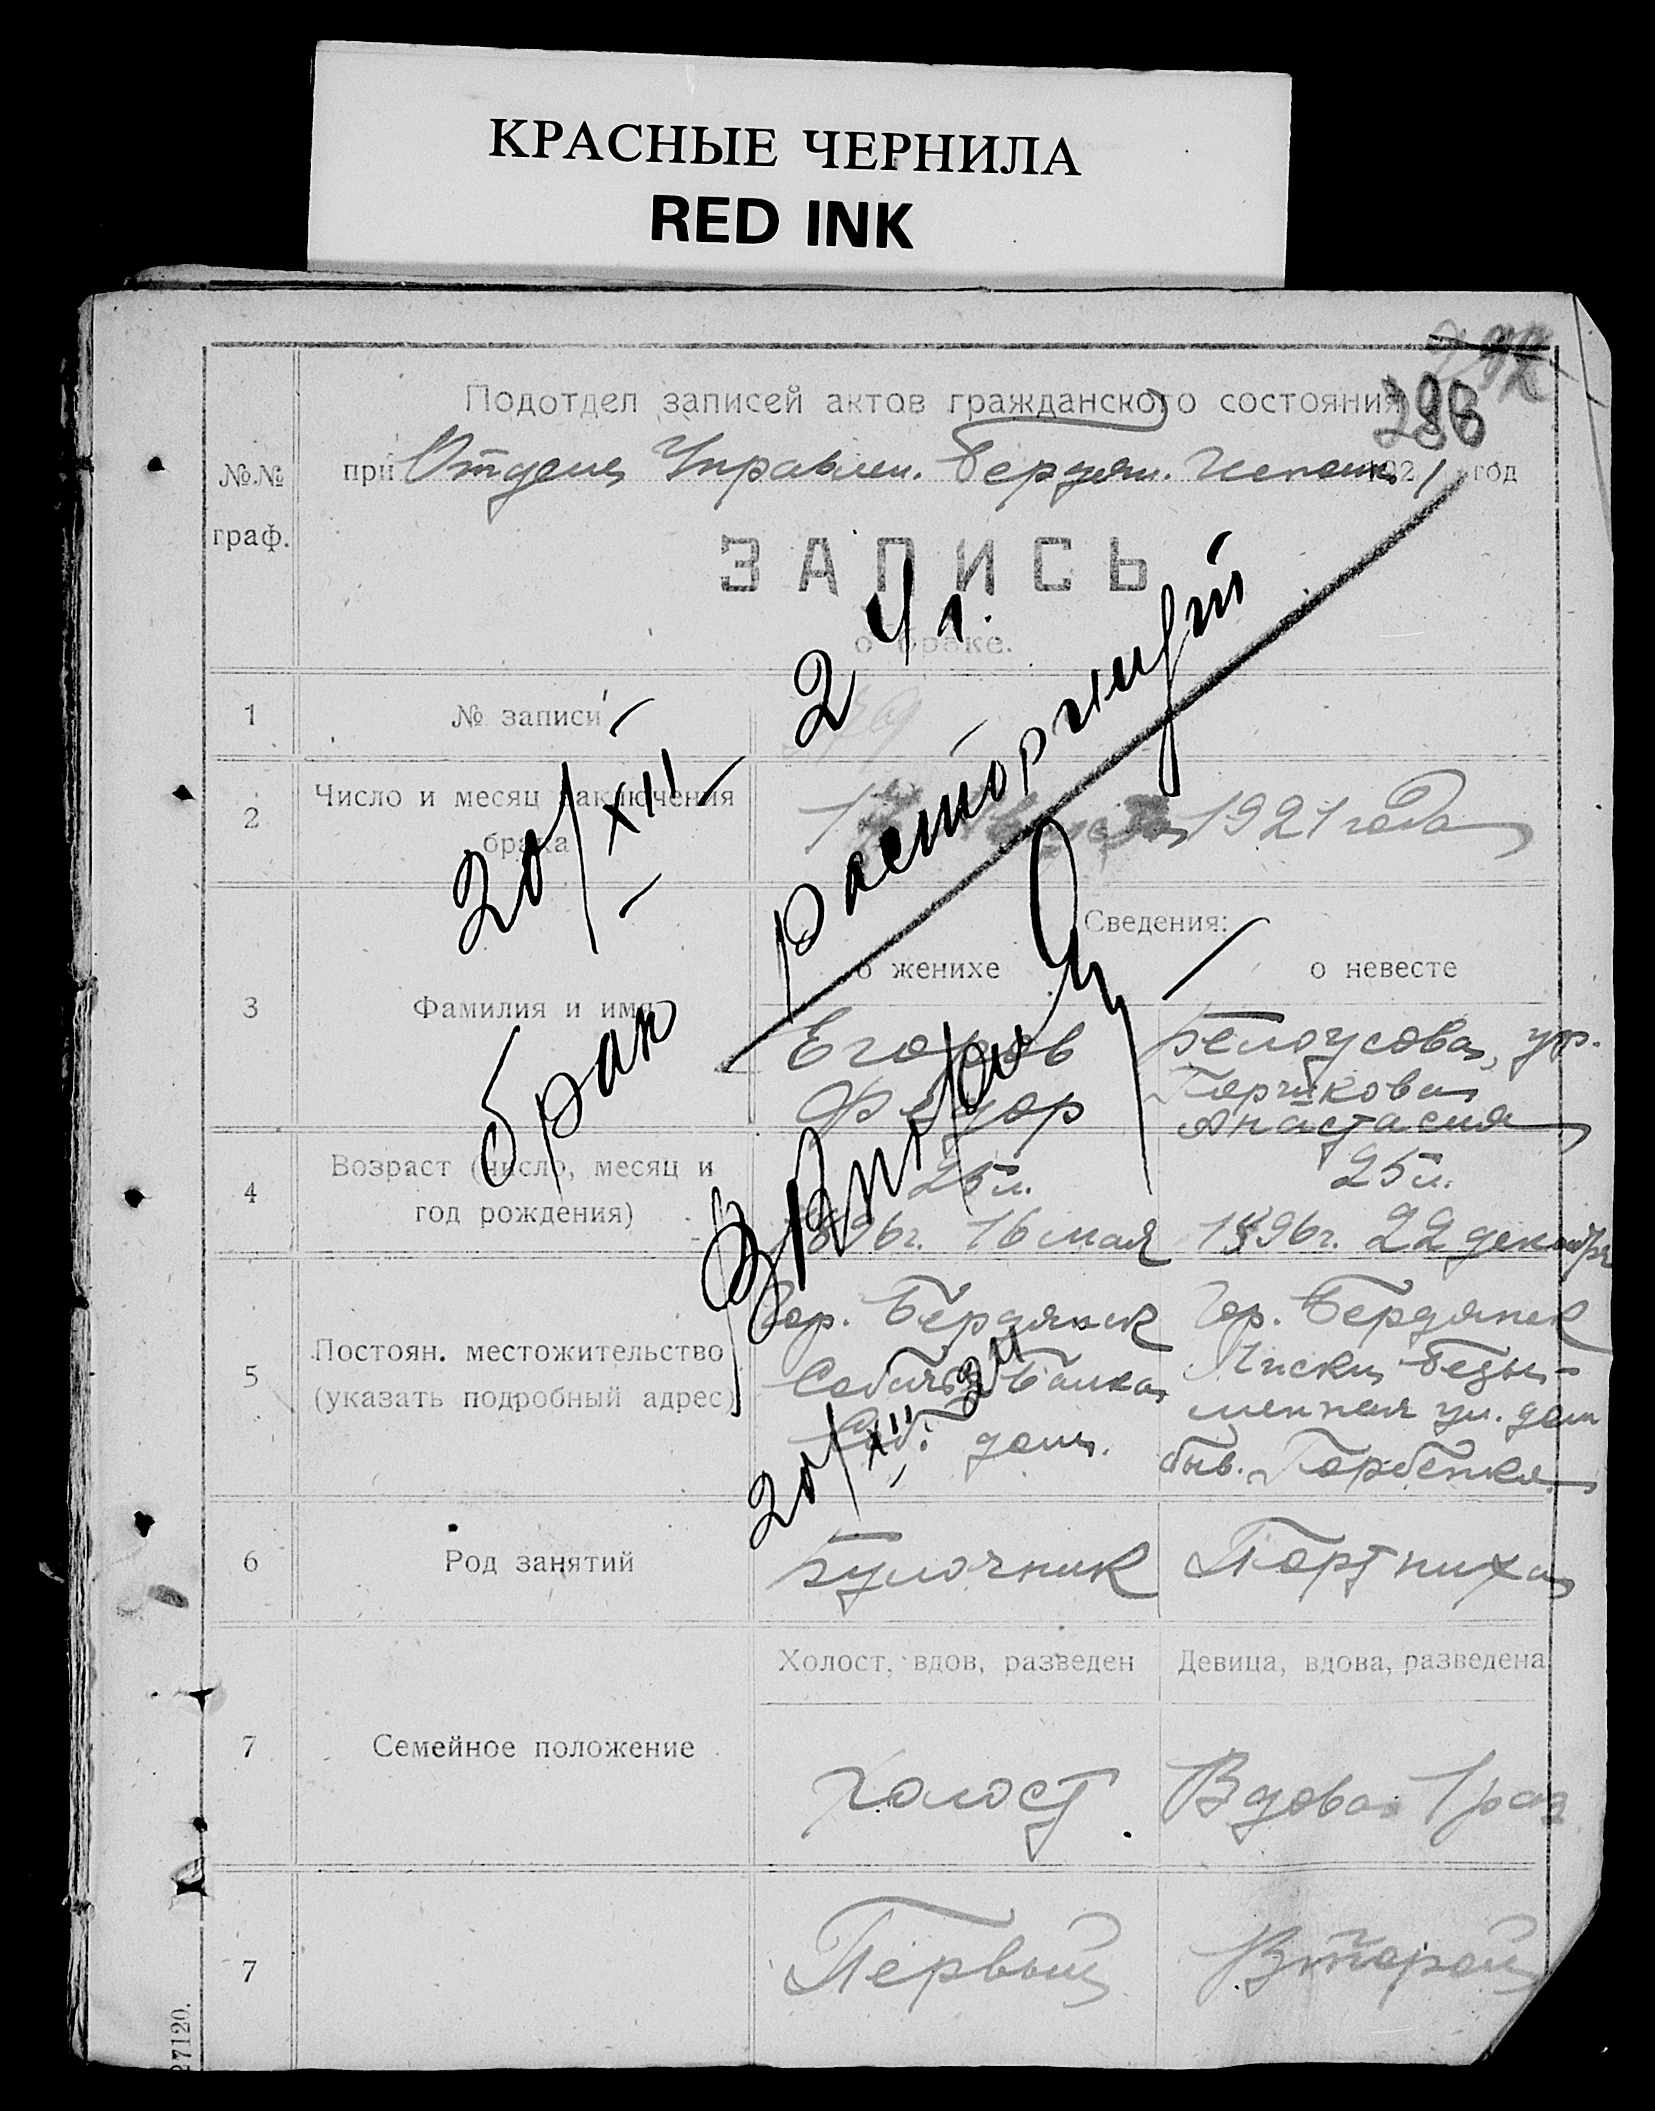 КРАСНЫЕ ЧЕРНИЛА
RED INK
286
Подотдел записей актов гражданского состояния
№.№ граф.
при Отделе Управлен. Бердян. 1921 год
ЗАПИСЬ
о браке.
1 № записи
2 Число и месяц заключения брака
1921 года
20/XII 24 г.
брак расторгнут
Сведения:
о женихе о невесте
3 Фамилия и имя
Егоров
Федор
Белоусова, ур.
Горшкова
Анастасия
4 Возраст (число, месяц и
год рождения)
25 л.
1896 г. 16 мая
25 л.
1896 г. 22 декабря
5 Постоян. местожительство
(указать подробный адрес)
Гор. Бердянск
Собачья Балка
Соб. дом.
Гор. Бердянск
Лиски Безы-
менная ул. дом
быв. Горбенко
20/XII 24
6 Род занятий
Булочник
Портниха
Холост, вдов, разведен
Девица, вдова, разведена
7 Семейное положение
Холост
Вдова 1 раз
7
Первый
Второй
27120.